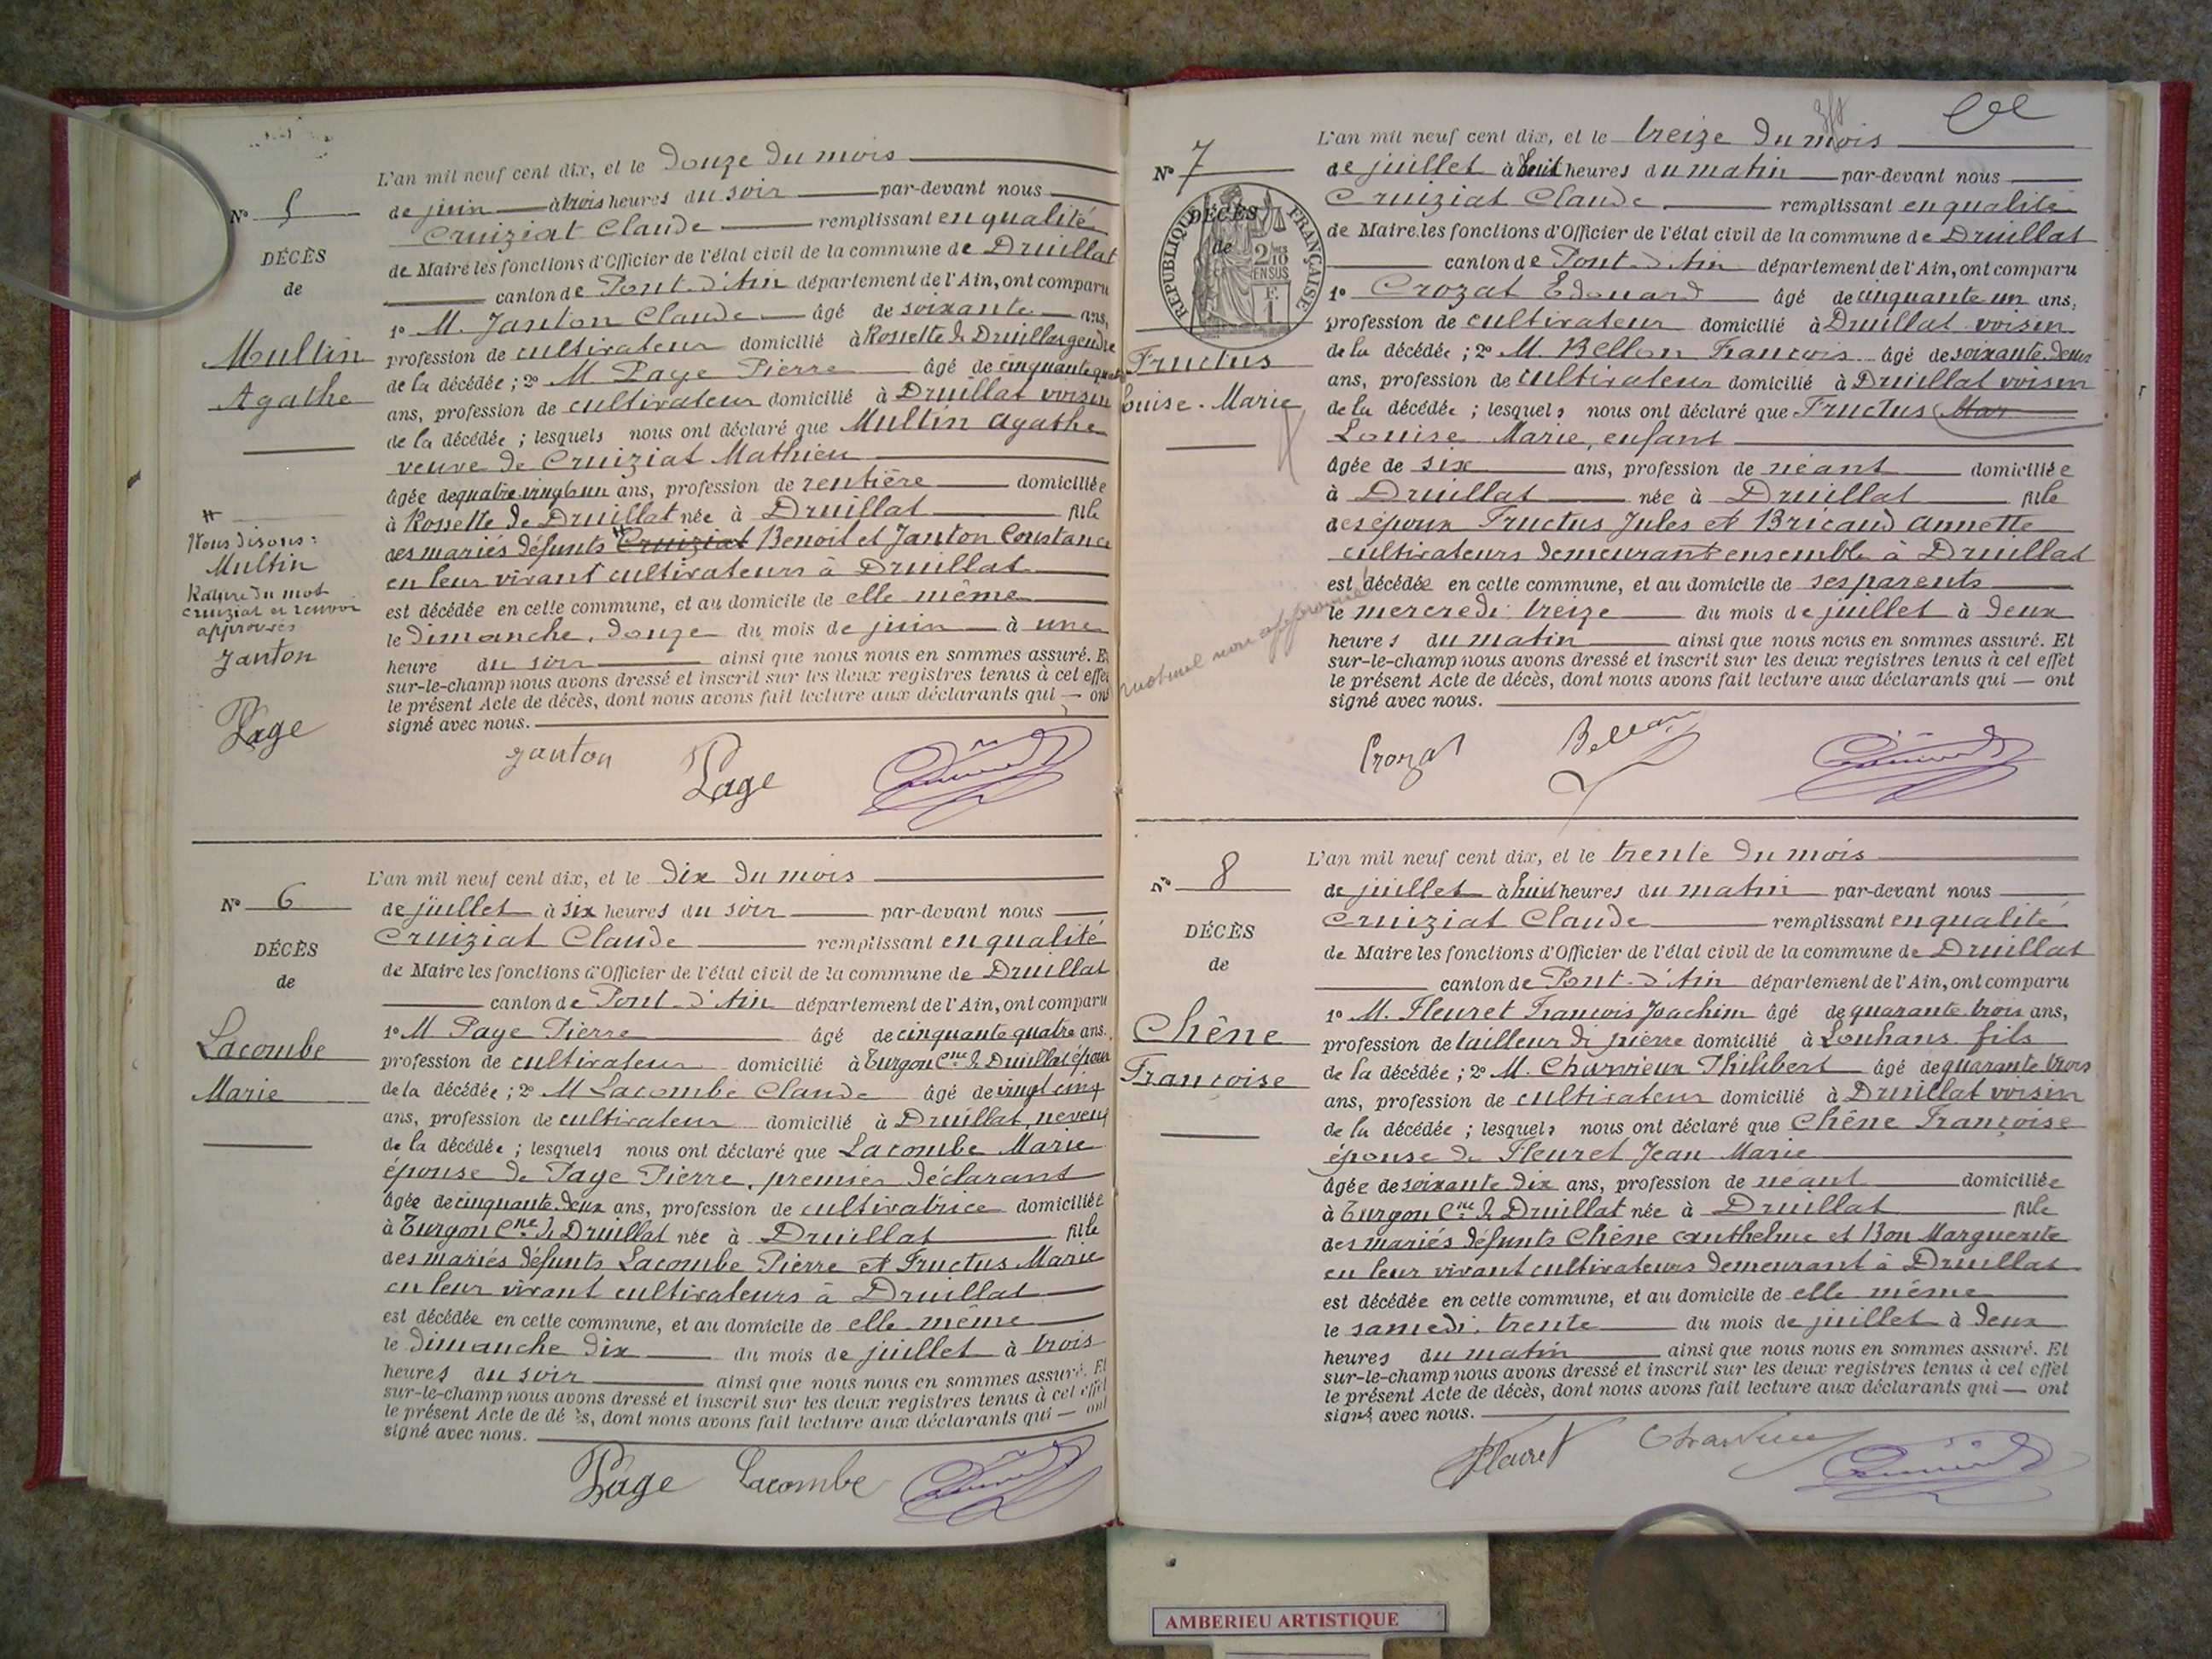 N° 5
DÉCÈS
de
Multin
Agathe
L'an mil neuf cent dix, et le douze du mois
de juin à trois heures du soir par-devant nous
Cruiziat Claude remplissant en qualité
de Maire les fonctions d'Officier de l'état civil de la commune de Druillat
canton de Pont-d'Ain département de l'Ain, ont comparu
1° M. Janton Claude âgé de soixante ans,
profession de cultivateur domicilié à Rossette de Druillat gendre
de la décédée ; 2° M Page Pierre âgé de cinquante quatre
ans, profession de cultivateur domicilié à Druillat voisin
de la décédée ; lesquels nous ont déclaré que Multin Agathe
veuve de Cruiziat Mathieu
âgée de quatre vingt un ans, profession de rentière domiciliée
à Rossette de Druillat née à Druillat fille
des mariés défunts Cruiziat Benoit et Janton Constance
en leur vivant cultivateurs à Druillat
est décédée en cette commune, et au domicile de elle même
le dimanche, douze du mois de juin à une
heure du soir ainsi que nous nous en sommes assuré. Et
sur-le-champ nous avons dressé et inscrit sur les deux registres tenus à cet effet
le présent Acte de décès, dont nous avons fait lecture aux déclarants qui — ont
signé avec nous.
Nous disons :
Multin
Rature du mot
cruiziat et renvoi
approuvés
Janton
Page
Janton Page
N° 6
DÉCÈS
de
Lacombe
Marie
L'an mil neuf cent dix, et le dix du mois
de juillet à six heures du soir par-devant nous
Cruiziat Claude remplissant en qualité
de Maire les fonctions d'Officier de l'état civil de la commune de Druillat
canton de Pont-d'Ain département de l'Ain, ont comparu
1° M Page Pierre âgé de cinquante quatre ans.
profession de cultivateur domicilié à Turgon Cne de Druillat époux
de la décédée ; 2° M Lacombe Claude âgé de vingt cinq
ans, profession de cultivateur domicilié à Druillat, neveu
de la décédée ; lesquels nous ont déclaré que Lacombe Marie
épouse de Page Pierre, premier déclarant
âgée de cinquante deux ans, profession de cultivatrice domiciliée
à Turgon Cne de Druillat née à Druillat fille
des mariés défunts Lacombe Pierre et Fructus Marie
en leur vivant cultivateurs à Druillat
est décédée en cette commune, et au domicile de elle même
le dimanche dix du mois de juillet à trois
heures du soir ainsi que nous nous en sommes assuré. Et
sur-le-champ nous avons dressé et inscrit sur les deux registres tenus à cet effet
le présent Acte de décès, dont nous avons fait lecture aux déclarants qui — ont
signé avec nous.
Page Lacombe
N° 7
DÉCÈS
de
RÉPUBLIQUE FRANÇAISE
2/10 EN SUS
F. 1
Fructus
Louise-Marie
L'an mil neuf cent dix, et le treize du mois
de juillet à huit heures du matin par-devant nous
Cruiziat Claude remplissant en qualité
de Maire les fonctions d'Officier de l'état civil de la commune de Druillat
canton de Pont-d'Ain département de l'Ain, ont comparu
1° Crozat Edouard âgé de cinquante un ans,
profession de cultivateur domicilié à Druillat voisin
de la décédée ; 2° M. Bellon François âgé de soixante deux
ans, profession de cultivateur domicilié à Druillat voisin
de la décédée ; lesquels nous ont déclaré que Fructus Mar
Louise Marie, enfant
âgée de six ans, profession de néant domiciliée
à Druillat née à Druillat fille
des époux Fructus Jules et Bricaud Annette
cultivateurs demeurant ensemble à Druillat
est décédée en cette commune, et au domicile de ses parents
le mercredi treize du mois de juillet à deux
heures du matin ainsi que nous nous en sommes assuré. Et
sur-le-champ nous avons dressé et inscrit sur les deux registres tenus à cet effet
le présent Acte de décès, dont nous avons fait lecture aux déclarants qui — ont
signé avec nous.
Crozat Bellon
N° 8
DÉCÈS
de
Chêne
Françoise
L'an mil neuf cent dix, et le trente du mois
de juillet à huit heures du matin par-devant nous
Cruiziat Claude remplissant en qualité
de Maire les fonctions d'Officier de l'état civil de la commune de Druillat
canton de Pont-d'Ain département de l'Ain, ont comparu
1° M. Fleuret François Joachim âgé de quarante trois ans,
profession de tailleur de pierre domicilié à Louhans fils
de la décédée ; 2° M. Charvieux Philibert âgé de quarante trois
ans, profession de cultivateur domicilié à Druillat voisin
de la décédée ; lesquels nous ont déclaré que Chêne Françoise
épouse de Fleuret Jean Marie
âgée de soixante dix ans, profession de néant domiciliée
à Turgon Cne de Druillat née à Druillat fille
des mariés défunts Chêne Anthelme et Bon Marguerite
en leur vivant cultivateurs demeurant à Druillat
est décédée en cette commune, et au domicile de elle même
le samedi, trente du mois de juillet à deux
heures du matin ainsi que nous nous en sommes assuré. Et
sur-le-champ nous avons dressé et inscrit sur les deux registres tenus à cet effet
le présent Acte de décès, dont nous avons fait lecture aux déclarants qui — ont
signé avec nous.
Fleuret Charvieux
AMBERIEU ARTISTIQUE